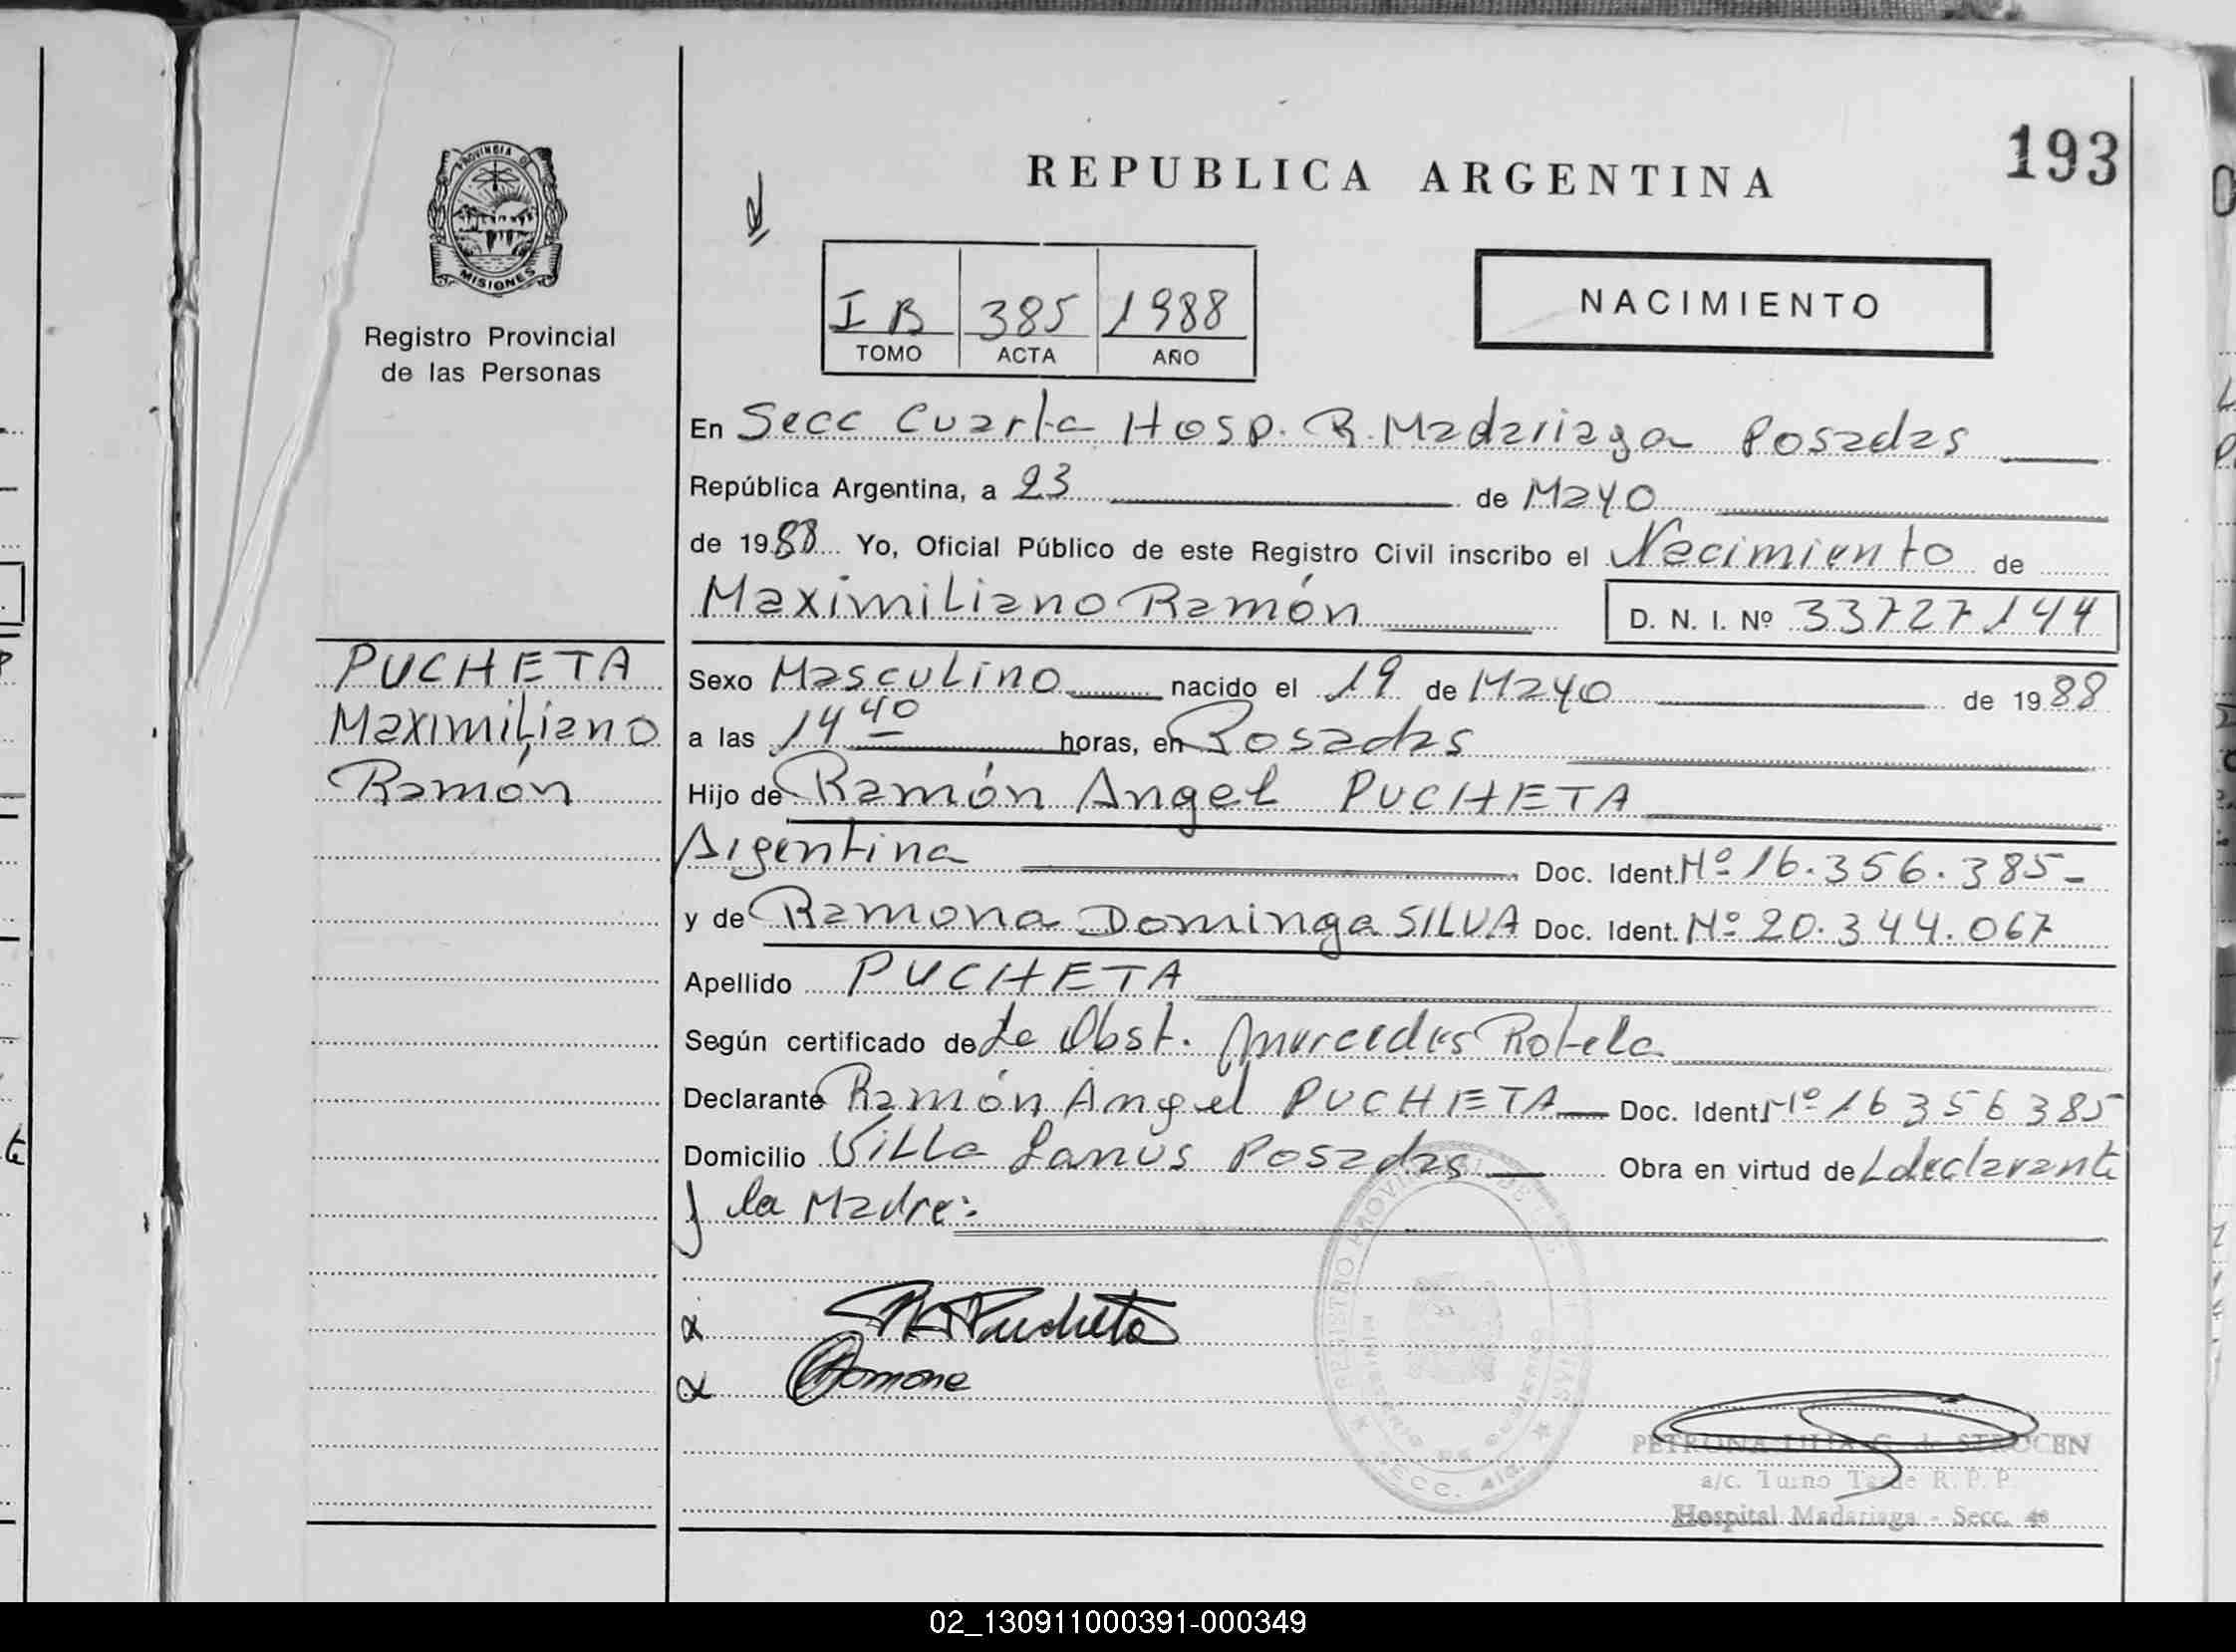 193
REPUBLICA ARGENTINA
PROVINCIA DE
MISIONES
Registro Provincial
de las Personas
I B 385 1988
TOMO ACTA AÑO
NACIMIENTO
En Secc Cuarta Hosp. R. Madariaga Posadas
República Argentina, a 23 de Mayo
de 1988 Yo, Oficial Público de este Registro Civil inscribo el Nacimiento de
Maximiliano Ramón D. N. I. Nº 33727144
PUCHETA
Maximiliano
Ramón
Sexo Masculino nacido el 19 de Mayo de 1988
a las 14 40 horas, en Posadas
Hijo de Ramón Angel PUCHETA
Argentina Doc. Ident. Nº 16.356.385-
y de Ramona Dominga SILVA Doc. Ident. Nº 20.344.067
Apellido PUCHETA
Según certificado de La Obst. Mercedes Rotela
Declarante Ramón Angel PUCHETA Doc. Ident. Nº 16356385
Domicilio Villa Lanus Posadas Obra en virtud de L declarante
y la Madre:
Pucheta
Ramona
REGISTRO PROVINCIAL DE LAS
MINISTERIO DE GOBIERNO
SECC. 4ta.
PETRONA LILIA G. de STROCEN
a/c. Turno Tarde R. P. P.
Hospital Madariaga - Secc. 4ª
02_130911000391-000349